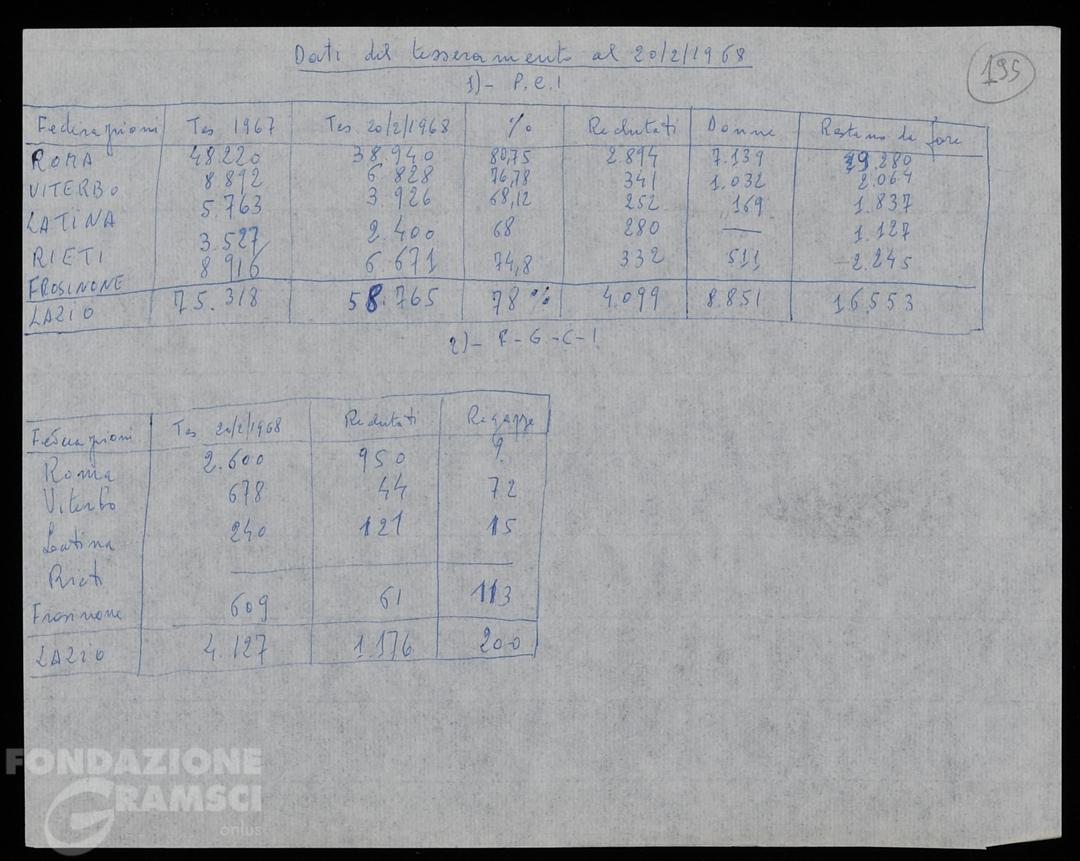 Dati del tesseramento al 20/2/1968
195
1)- P.C.I
Federazioni Tes 1967 Tes 20/2/1968 % Reclutati Donne Restano da fare
ROMA 48.220 38.940 80,75 2.894 7.139 9.280
VITERBO 8 892 6 828 76,78 341 1.032 2.064
LATINA 5.763 3.926 68,12 252 169 1.837
RIETI 3.527 2.400 68 280 — 1.127
FROSINONE 8 916 6 671 74,8 332 511 2.245
LAZIO 75.318 58.765 78 % 4.099 8.851 16.553
2)- F-G-C-I
Federazioni Tes 20/2/1968 Reclutati Ragazze
Roma 2.600 950 ?
Viterbo 678 44 72
Latina 240 121 15
Rieti —
Frosinone 609 61 113
LAZIO 4.127 1.176 200
FONDAZIONE
GRAMSCI
onlus